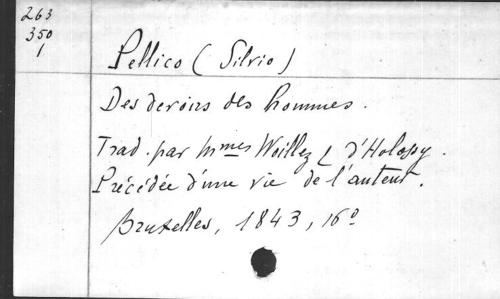 263
350
1
Pellico (Silvio)
Des devoirs des hommes.
Trad. par Mmes Woillez & d'Holosy.
Précédée d'une vie de l'auteur.
Bruxelles, 1843, 16º